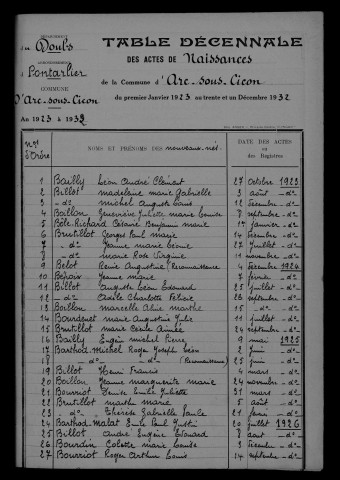 DÉPARTEMENT
du Doubs
ARRONDISSEMENT
d Pontarlier
COMMUNE
D'Arc-sous-Cicon
An 1923 à 1932
TABLE DÉCENNALE
DES ACTES DE Naissances
de la Commune d'Arc-sous-Cicon
du premier Janvier 1923 au trente et un Décembre 1932
Nos d'Ordre
NOMS ET PRÉNOMS DES nouveaux-nés
DATE DES ACTES ou des Registres
1 Bailly Léon André Clément 27 octobre 1923
2 Billot Madeleine Marie Gabrielle 3 août -do-
3 -do- Michel Auguste Louis 12 décembre -do-
4 Boillon Geneviève Juliette Marie Louise 8 septembre -do-
5 Bôle-Richard Césaire Benjamin Marie 1er janvier -do-
6 Brutillot Georges Paul Marie 14 décembre -do-
7 -do- Jeanne Marie 27 juillet -do-
8 -do- Marie Rose 11 novembre -do-
9 Belot Rémi Augustine (Reconnaissance) 4 décembre 1924
10 Jeanne Marie 7 février -do-
11 Billot Auguste Léon Edouard 25 juillet -do-
12 -do- Adèle Charlotte Félicie 26 septembre -do-
13 Boillon Marcelle Aline Marthe -do-
14 Bourdenet Marie Augustine 11 juillet -do-
15 Brutillot Marie Cécile Aimée -do-
16 Bailly Eugène Michel Pierre 9 mai 1925
17 Barthod-Michel Roger Joseph Léon 2 juin -do-
18 -do- -do- (Reconnaissance) 25 juin -do-
19 Billot Henri Francis 4 mars -do-
20 Boillon Jeanne Marguerite Marie 24 novembre -do-
21 Bourriot Denise Emilie Juliette 31 mars -do-
22 Brutillot Marthe Marie 5 août -do-
23 -do- Thérèse Gabrielle Paule 21 -do-
24 Barthod-Malat Emile Paul 20 juillet 1926
25 Billot André Eugène Edouard 8 août -do-
26 Bourdin Colette Marie Louise 2 mars -do-
27 Bourriot Roger Arthur Louis 14 septembre -do-